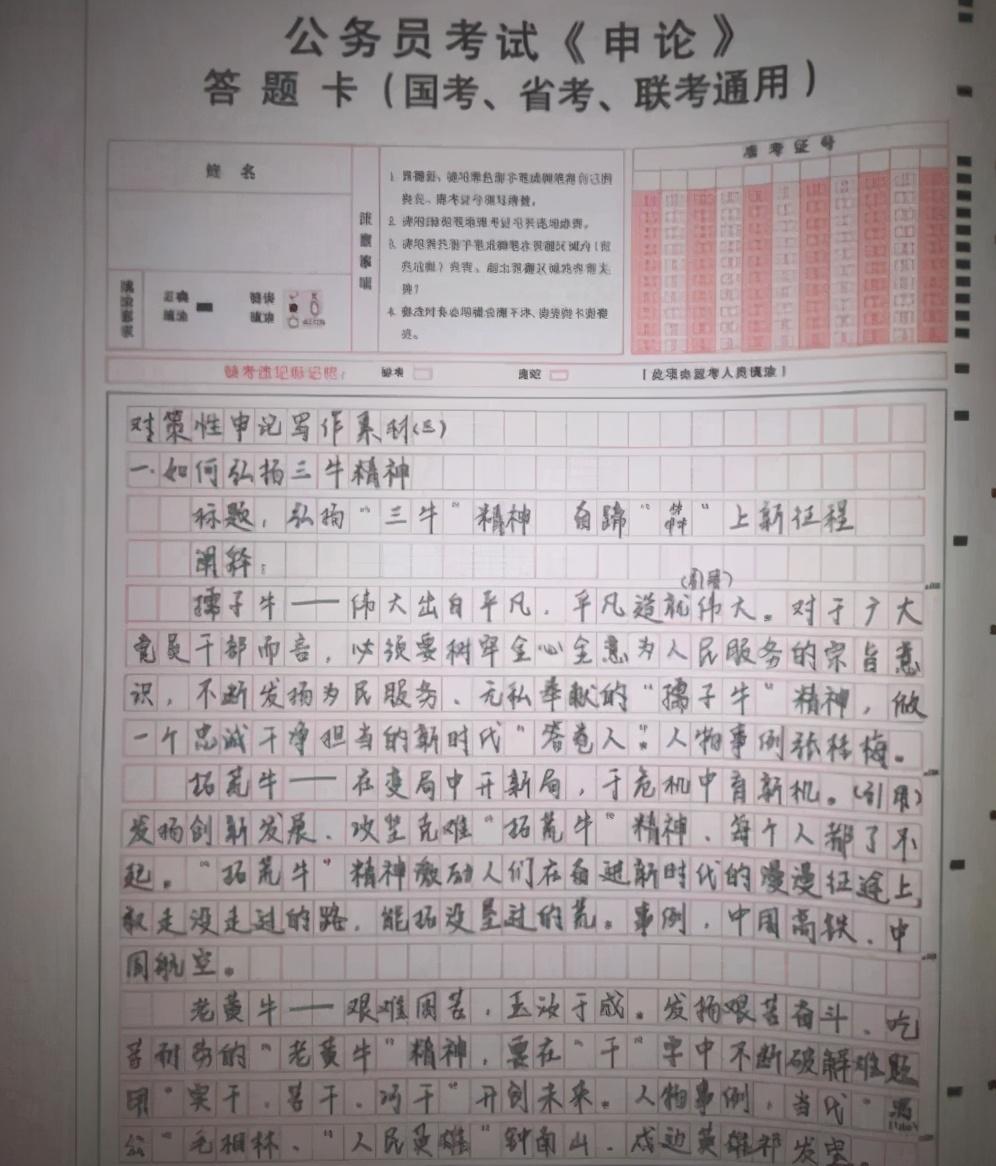 公务员考试《申论》
答题卡(国考、省考、联考通用)
准考证号
姓名
注意事项
正确填涂
错误填涂
缺考
对策性申论写作素材(三)
一.如何弘扬三牛精神
标题:弘扬"三牛"精神 奋蹄"犇"上新征程
阐释:
(引用)
孺子牛——伟大出自平凡,平凡造就伟大。对于广大
党员干部而言,必须要树牢全心全意为人民服务的宗旨意
识,不断发扬为民服务、无私奉献的"孺子牛"精神,做
一个忠诚干净担当的新时代"答卷人"。人物事例张桂梅。
拓荒牛——在变局中开新局,于危机中育新机。(引用)
发扬创新发展、攻坚克难"拓荒牛"精神、每个人都了不
起。"拓荒牛"精神激励人们在奋进新时代的漫漫征途上,
敢走没走过的路,能拓没垦过的荒。事例:中国高铁、中
国航空。
老黄牛——艰难困苦,玉汝于成。发扬艰苦奋斗、吃
苦耐劳的"老黄牛"精神,要在"干"字中不断破解难题
用"实干、苦干、巧干"开创未来。人物事例:当代"愚
公"毛相林、"人民英雄"钟南山、戍边英雄祁发宝。